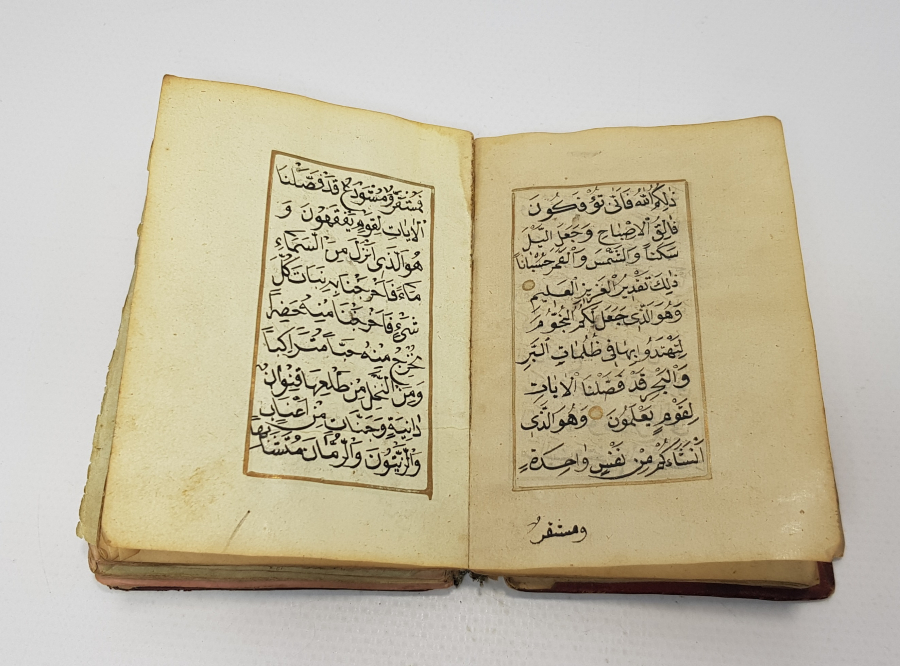 ذٰلِكُمُ اللّٰهُ فَاَنّٰى تُؤْفَكُونَ
فَالِقُ الْاِصْبَاحِ وَجَعَلَ الَّيْلَ
سَكَنًا وَالشَّمْسَ وَالْقَمَرَ حُسْبَانًا
ذٰلِكَ تَقْدِيرُ الْعَزِيزِ الْعَلِيمِ
وَهُوَ الَّذِى جَعَلَ لَكُمُ النُّجُومَ
لِتَهْتَدُوا بِهَا فِى ظُلُمَاتِ الْبَرِّ
وَالْبَحْرِ قَدْ فَصَّلْنَا الْاٰيَاتِ
لِقَوْمٍ يَعْلَمُونَ وَهُوَ الَّذِى
اَنْشَاَءَكُمْ مِنْ نَفْسٍ وَاحِدَةٍ
ومستقرٌ
فَمُسْتَقَرٌّ وَمُسْتَوْدَعٌ قَدْ فَصَّلْنَا
الْاٰيَاتِ لِقَوْمٍ يَفْقَهُونَ وَ
هُوَ الَّذِى اَنْزَلَ مِنَ السَّمَاءِ
مَاءً فَاَخْرَجْنَا بِهِ نَبَاتَ كُلِّ
شَىْءٍ فَاَخْرَجْنَا مِنْهُ خَضِرًا
نُخْرِجُ مِنْهُ حَبًّا مُتَرَاكِبًا
وَمِنَ النَّخْلِ مِنْ طَلْعِهَا قِنْوَانٌ
دَانِيَةٌ وَجَنَّاتٍ مِنْ اَعْنَابٍ
وَالزَّيْتُونَ وَالرُّمَّانَ مُتَشَابِهًا